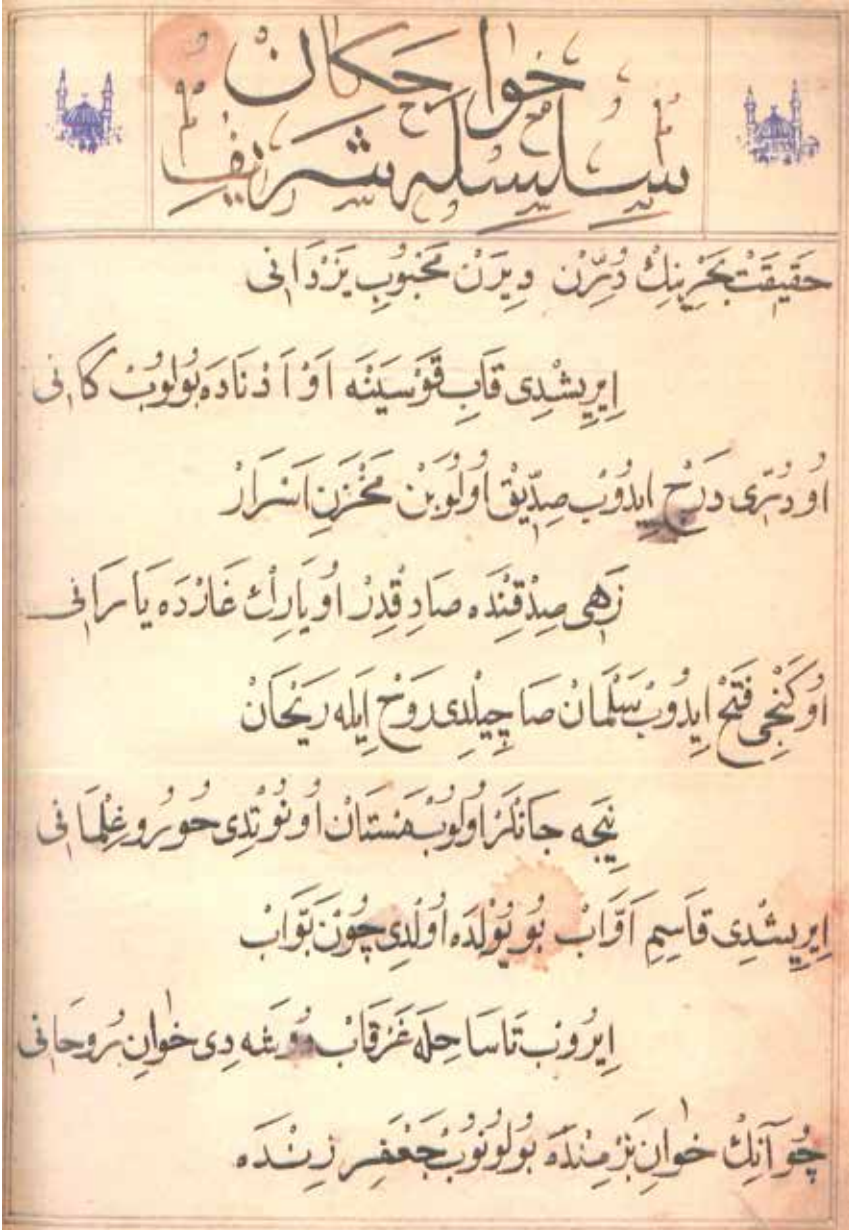 خواجكان
سلسله شريف
حَقِيقَتْ بَحْرِينِكْ دُرِّنْ وِيرَنْ مَحْبُوبِ يَزْدَانِى
اِيرِيشْدِى قَابَ قَوْسَيْنَه اَوْ اَدْنَادَه بُولُوبْ كَانِى
اُو دُرِّى دَرْجْ اِيدُوبْ صِدِّيقْ اُولُوبَنْ مَخْزَنِ اَسْرَارْ
زَهِى صِدْقِنْدَه صَادِقْدِرْ اُو يَارِكْ غَارْدَه يَارَانِى
اُو كَنْجِى فَتْحْ اِيدُوبْ سَلْمَانْ صَاچِيلْدِى رَوْحْ اِيلَه رَيْحَانْ
نِيجَه جَانْلَرْ اُولُوبْ مَسْتَانْ اُونُوتْدِى حُورُو غِلْمَانِى
اِيرِيشْدِى قَاسِمِ اَوَّابْ بُو يُولْدَه اُولْدِى چُونْ بَوَّابْ
اِيرُوبْ تَا سَاحِلَه غَرْقَابْ دُوشَه دِى خٰوانِ رُوحَانِى
چُو آنِكْ خٰوانِ بَزْمِنْدَه بُولُونُوبْ جَعْفَرِ زِنْدَه